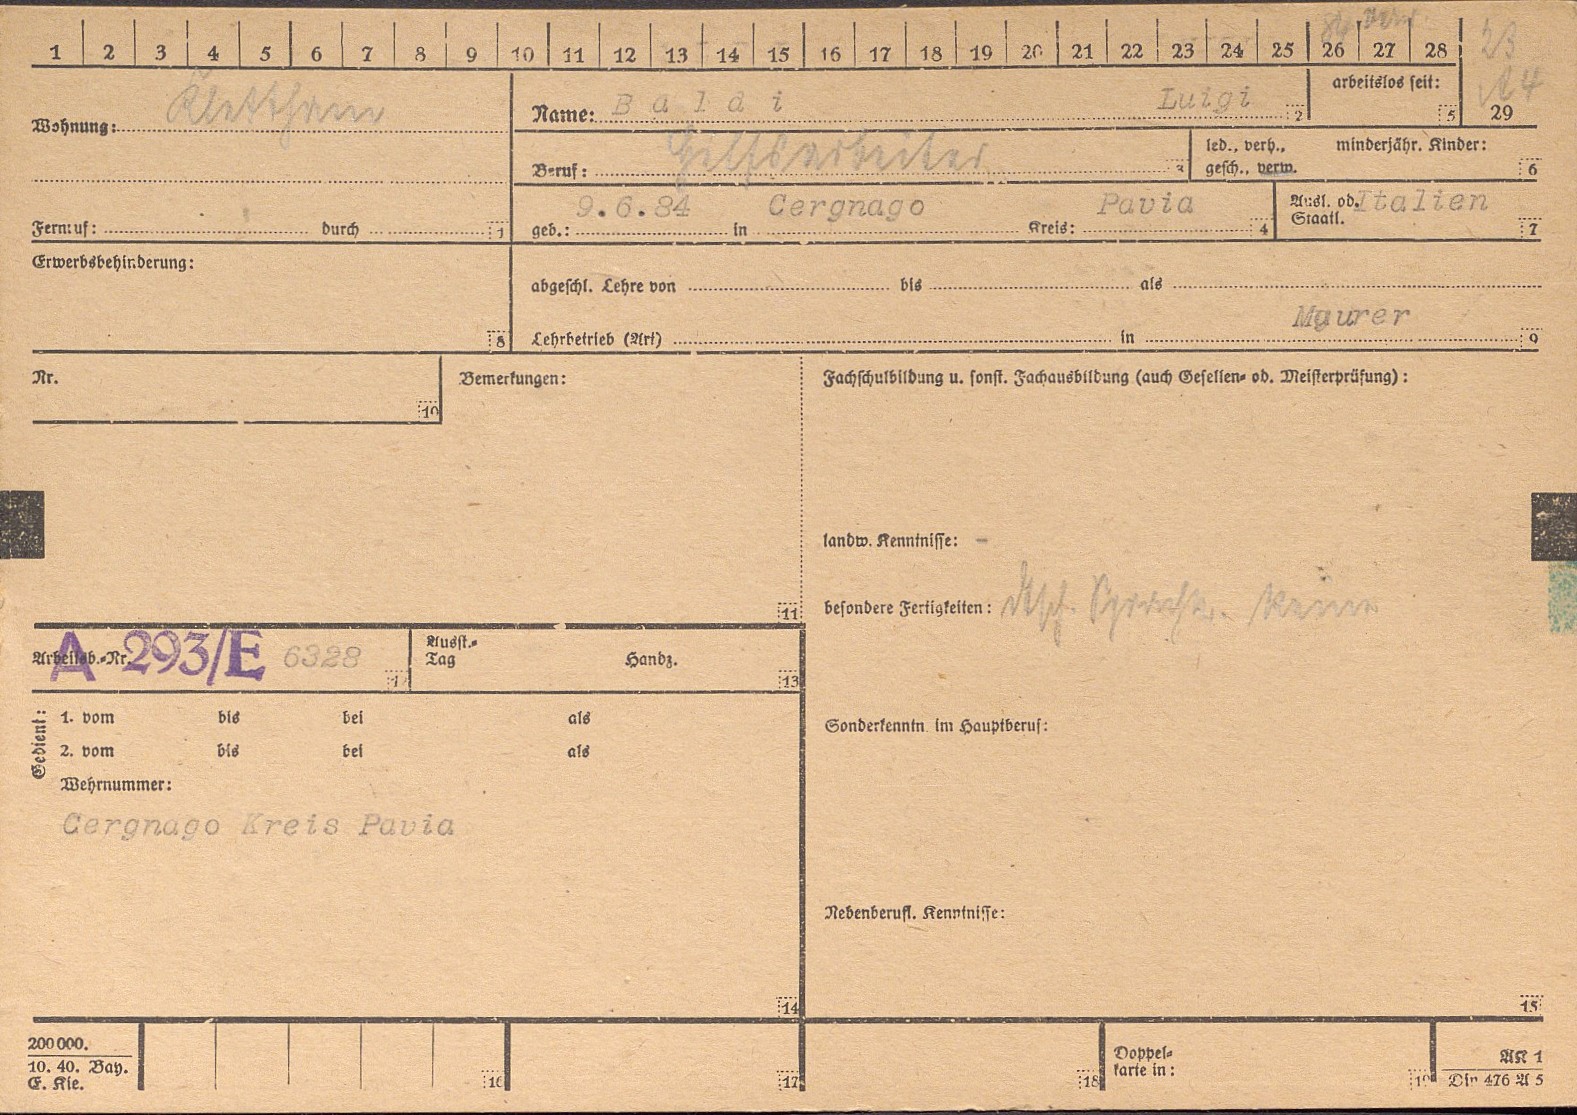 1 2 3 4 5 6 7 8 9 10 11 12 13 14 15 16 17 18 19 20 21 22 23 24 25 26 27 28
23
A 4
29
Wohnung: Klettham
Name: Baldi Luigi 2
arbeitslos seit: 5
Beruf: Hilfsarbeiter 3
led., verh., gesch., verw.
minderjähr. Kinder: 6
Fernruf: durch 1
geb.: 9.6.84 in Cergnago Kreis: Pavia 4
Ausl. od. Staatl. Italien 7
Erwerbsbehinderung: 8
abgeschl. Lehre von bis als
Maurer
Lehrbetrieb (Art) in 9
Nr. 10
Bemerkungen: 11
Fachschulbildung u. sonst. Fachausbildung (auch Gesellen- od. Meisterprüfung):
landw. Kenntnisse: -
besondere Fertigkeiten: dtsch. Sprache. Keine
Arbeitsb.-Nr. A 293/E 6328
Ausst.-Tag Handz. 13
Gedient:
1. vom bis bei als
2. vom bis bei als
Wehrnummer:
Cergnago Kreis Pavia
14
Sonderkenntn. im Hauptberuf:
Nebenberufl. Kenntnisse:
15
200 000.
10. 40. Bay.
E. Kle.
16 17 18
Doppel-
karte in:
19
AK 1
Din 476 A 5